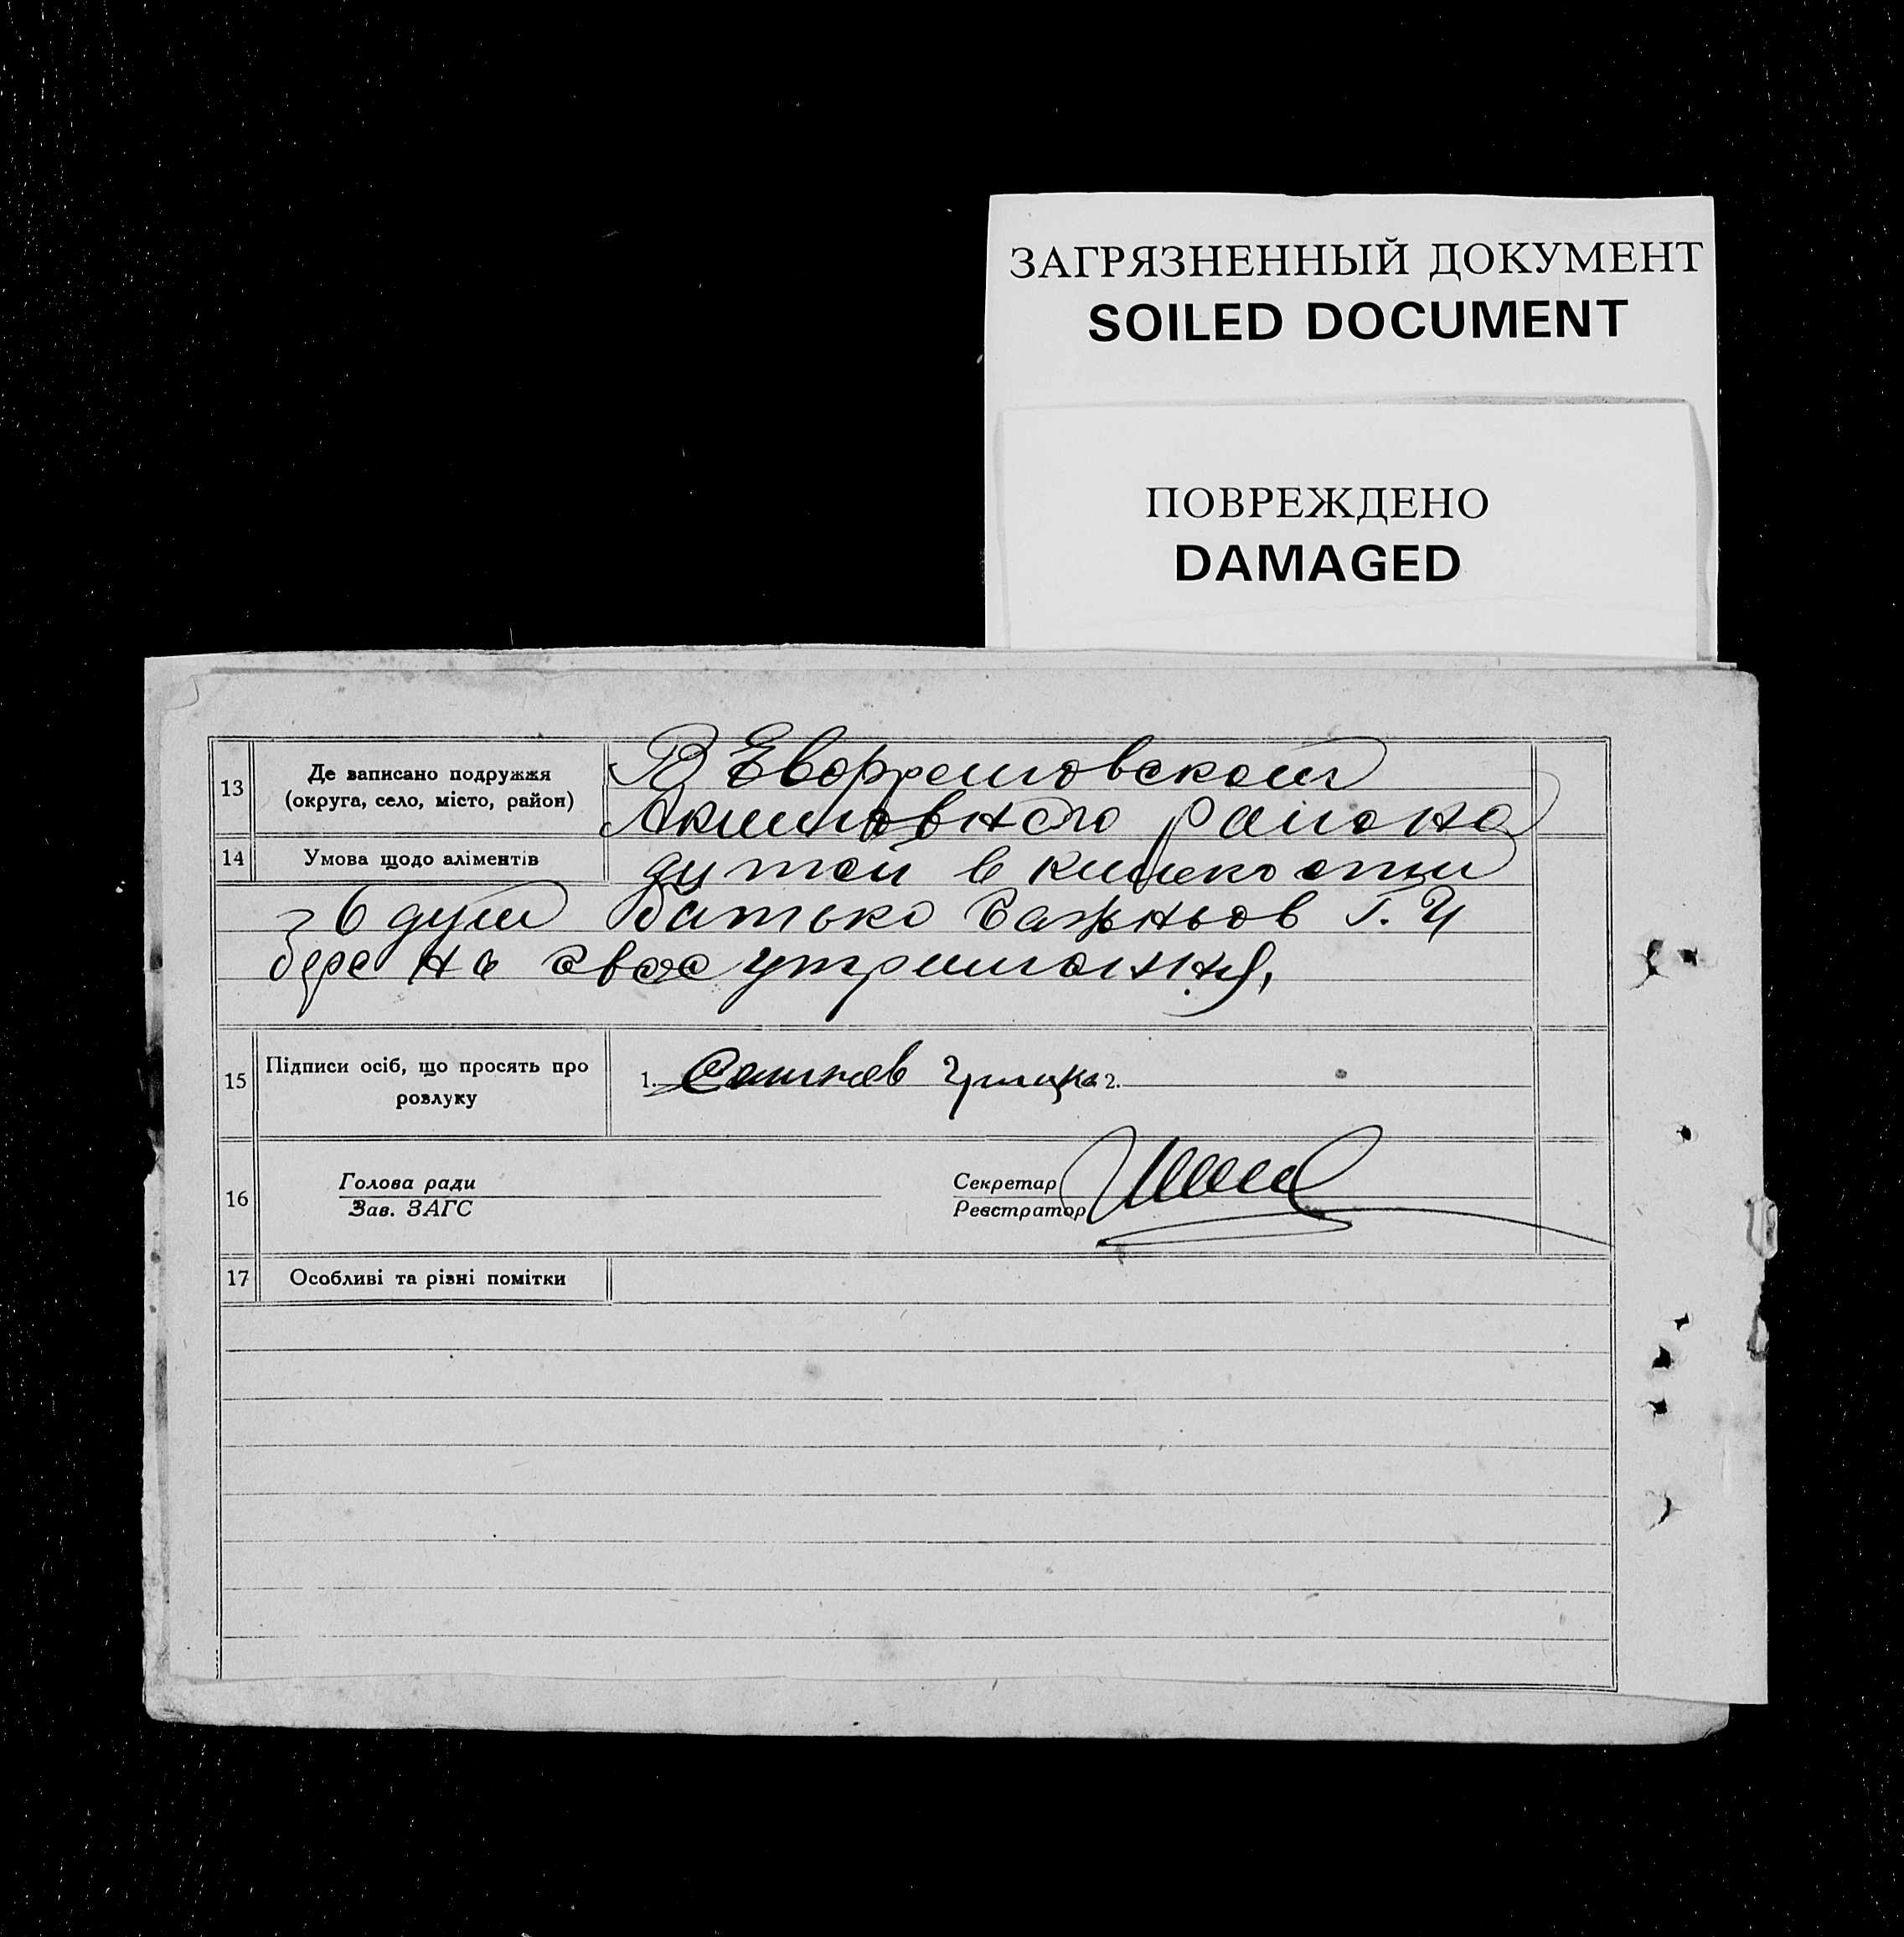 ЗАГРЯЗНЕННЫЙ ДОКУМЕНТ
SOILED DOCUMENT
ПОВРЕЖДЕНО
DAMAGED
13
Де записано подружжя
(округа, село, місто, район)
В
района
14
Умова щодо аліментів
дитей в
6 душ батько Г. Ц
бере на свое утримання,
15
Підписи осіб, що просять про
розлуку
1.
2.
16
Голова ради
Зав. ЗАГС
Секретар
Реєстратор
17
Особливі та різні помітки